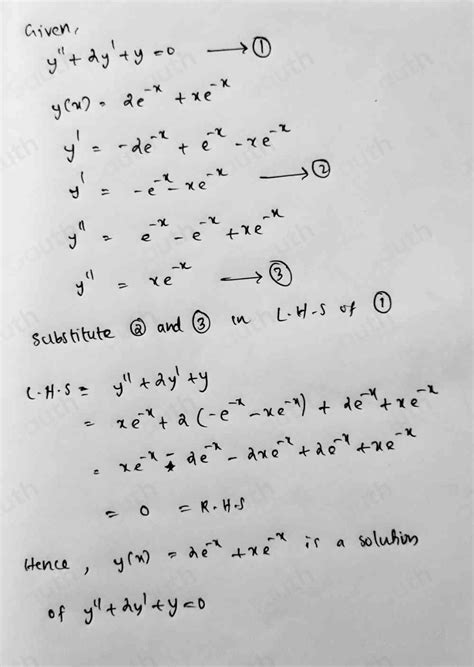 Given,
y'' + 2y' + y = 0 ⟶ ①
y(x) = 2e^{-x} + xe^{-x}
y' = -2e^{-x} + e^{-x} - xe^{-x}
y' = -e^{-x} - xe^{-x} ⟶ ②
y'' = e^{-x} - e^{-x} + xe^{-x}
y'' = xe^{-x} ⟶ ③
Substitute ② and ③ in L.H.S of ①
L.H.S = y'' + 2y' + y
= xe^{-x} + 2(-e^{-x} - xe^{-x}) + 2e^{-x} + xe^{-x}
= xe^{-x} - 2e^{-x} - 2xe^{-x} + 2e^{-x} + xe^{-x}
= 0 = R.H.S
Hence, y(x) = 2e^{-x} + xe^{-x} is a solution
of y'' + 2y' + y = 0